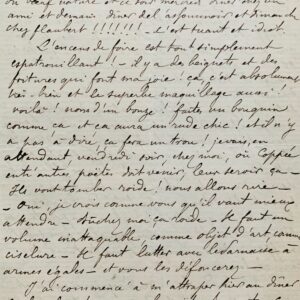 nature et ce soir mercredi dîner chez un
ami et demain dîner del asponnoir et dimanche
chez flaubert !!!!!!! – c'est tuant et idiot.
L'encens de foire est tout simplement
espatrouillant ! – il y a des beignets et des
fritures qui font ma joie ! ça, c'est absolument
très-bien et le superbe maquillage aussi !
voilà ! nom d'un bonze ! faites un bouquin
comme ça et ça aura un rude chic ! et il n'y
a pas à dire, ça fera un trou ! je vais, en
attendant, vendredi soir, chez moi, où Coppée
entr'autres, poètes doit venir, leur servir ça –
Ils vont tomber roide ! nous allons rire –
– Oui, je crois comme vous qu'il vaut mieux
attendre – touchez moi ça roide – Il faut un
volume inattaquable, comme objet d'art comme
ciselure – Il faut lutter avec
armes égales – et vous les
J'ai commencé à m'attraper hier au dîner